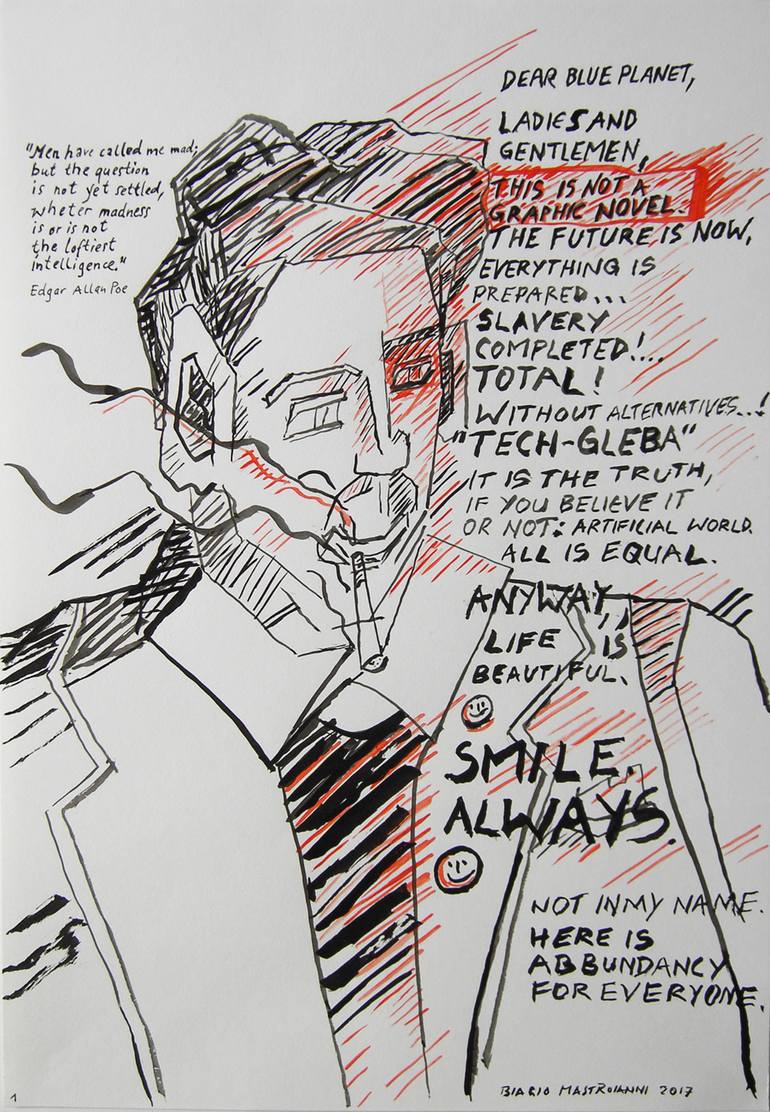 "Men have called me mad;
but the question
is not yet settled,
wheter madness
is or is not
the loftiest
intelligence."
Edgar Allan Poe
DEAR BLUE PLANET,
LADIES AND
GENTLEMEN,
THIS IS NOT A
GRAPHIC NOVEL.
THE FUTURE IS NOW,
EVERYTHING IS
PREPARED...
SLAVERY
COMPLETED!...
TOTAL!
WITHOUT ALTERNATIVES...!
"TECH-GLEBA"
IT IS THE TRUTH,
IF YOU BELIEVE IT
OR NOT: ARTIFICIAL WORLD.
ALL IS EQUAL.
ANYWAY,
LIFE IS
BEAUTIFUL.
SMILE.
ALWAYS.
NOT IN MY NAME.
HERE IS
ABBUNDANCY
FOR EVERYONE.
BIAGIO MASTROIANNI 2017
1